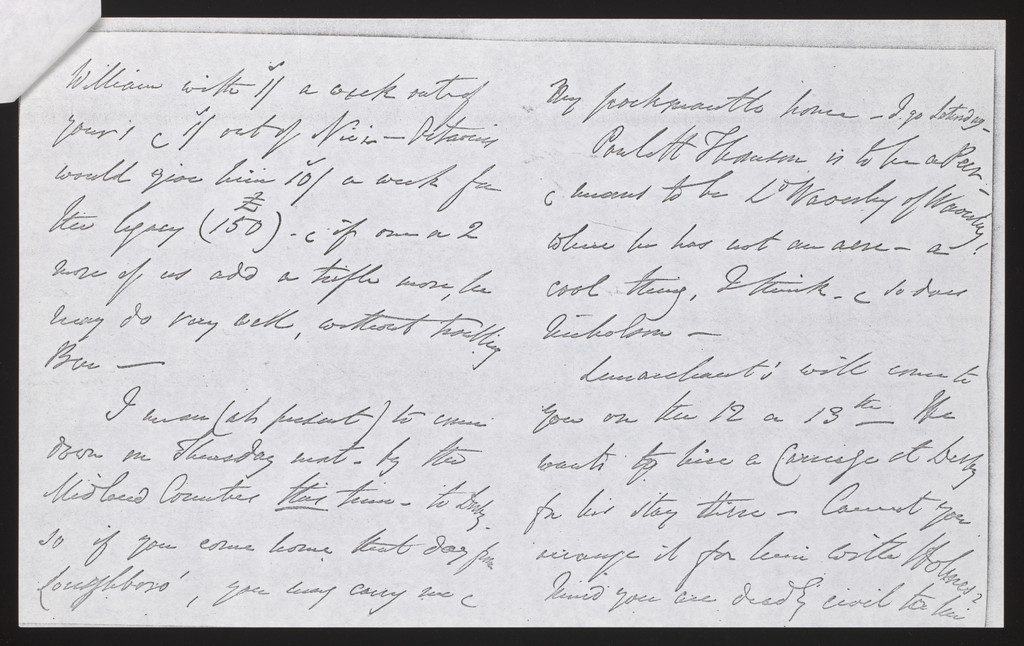 William with 5/ a week out of
yours, & 5/ out of – Octavius
would give him 10/ a week for
the legacy (£150) – & if one or 2
more of us add a trifle more, he
may do very well, without troubling
Ben —
I mean (at present) to come
down on Thursday next – by the
Midland Counties this time – to Derby.
so if you come home that day from
Loughboro', you may carry me &
my portmanteau home – I go Saturday –
Poulett Thomson is to be a Peer –
& means to be Ld Waverley of Waverley!
where he has not an acre – a
cool thing, I think. & so does
Nicholson –
Lemarchant's will come to
you on the 12 or 13th – He
wants to hire a Carriage at Derby
for his stay there – Cannot you
arrange it for him with Holmes?
Mind you are deadly civil to him